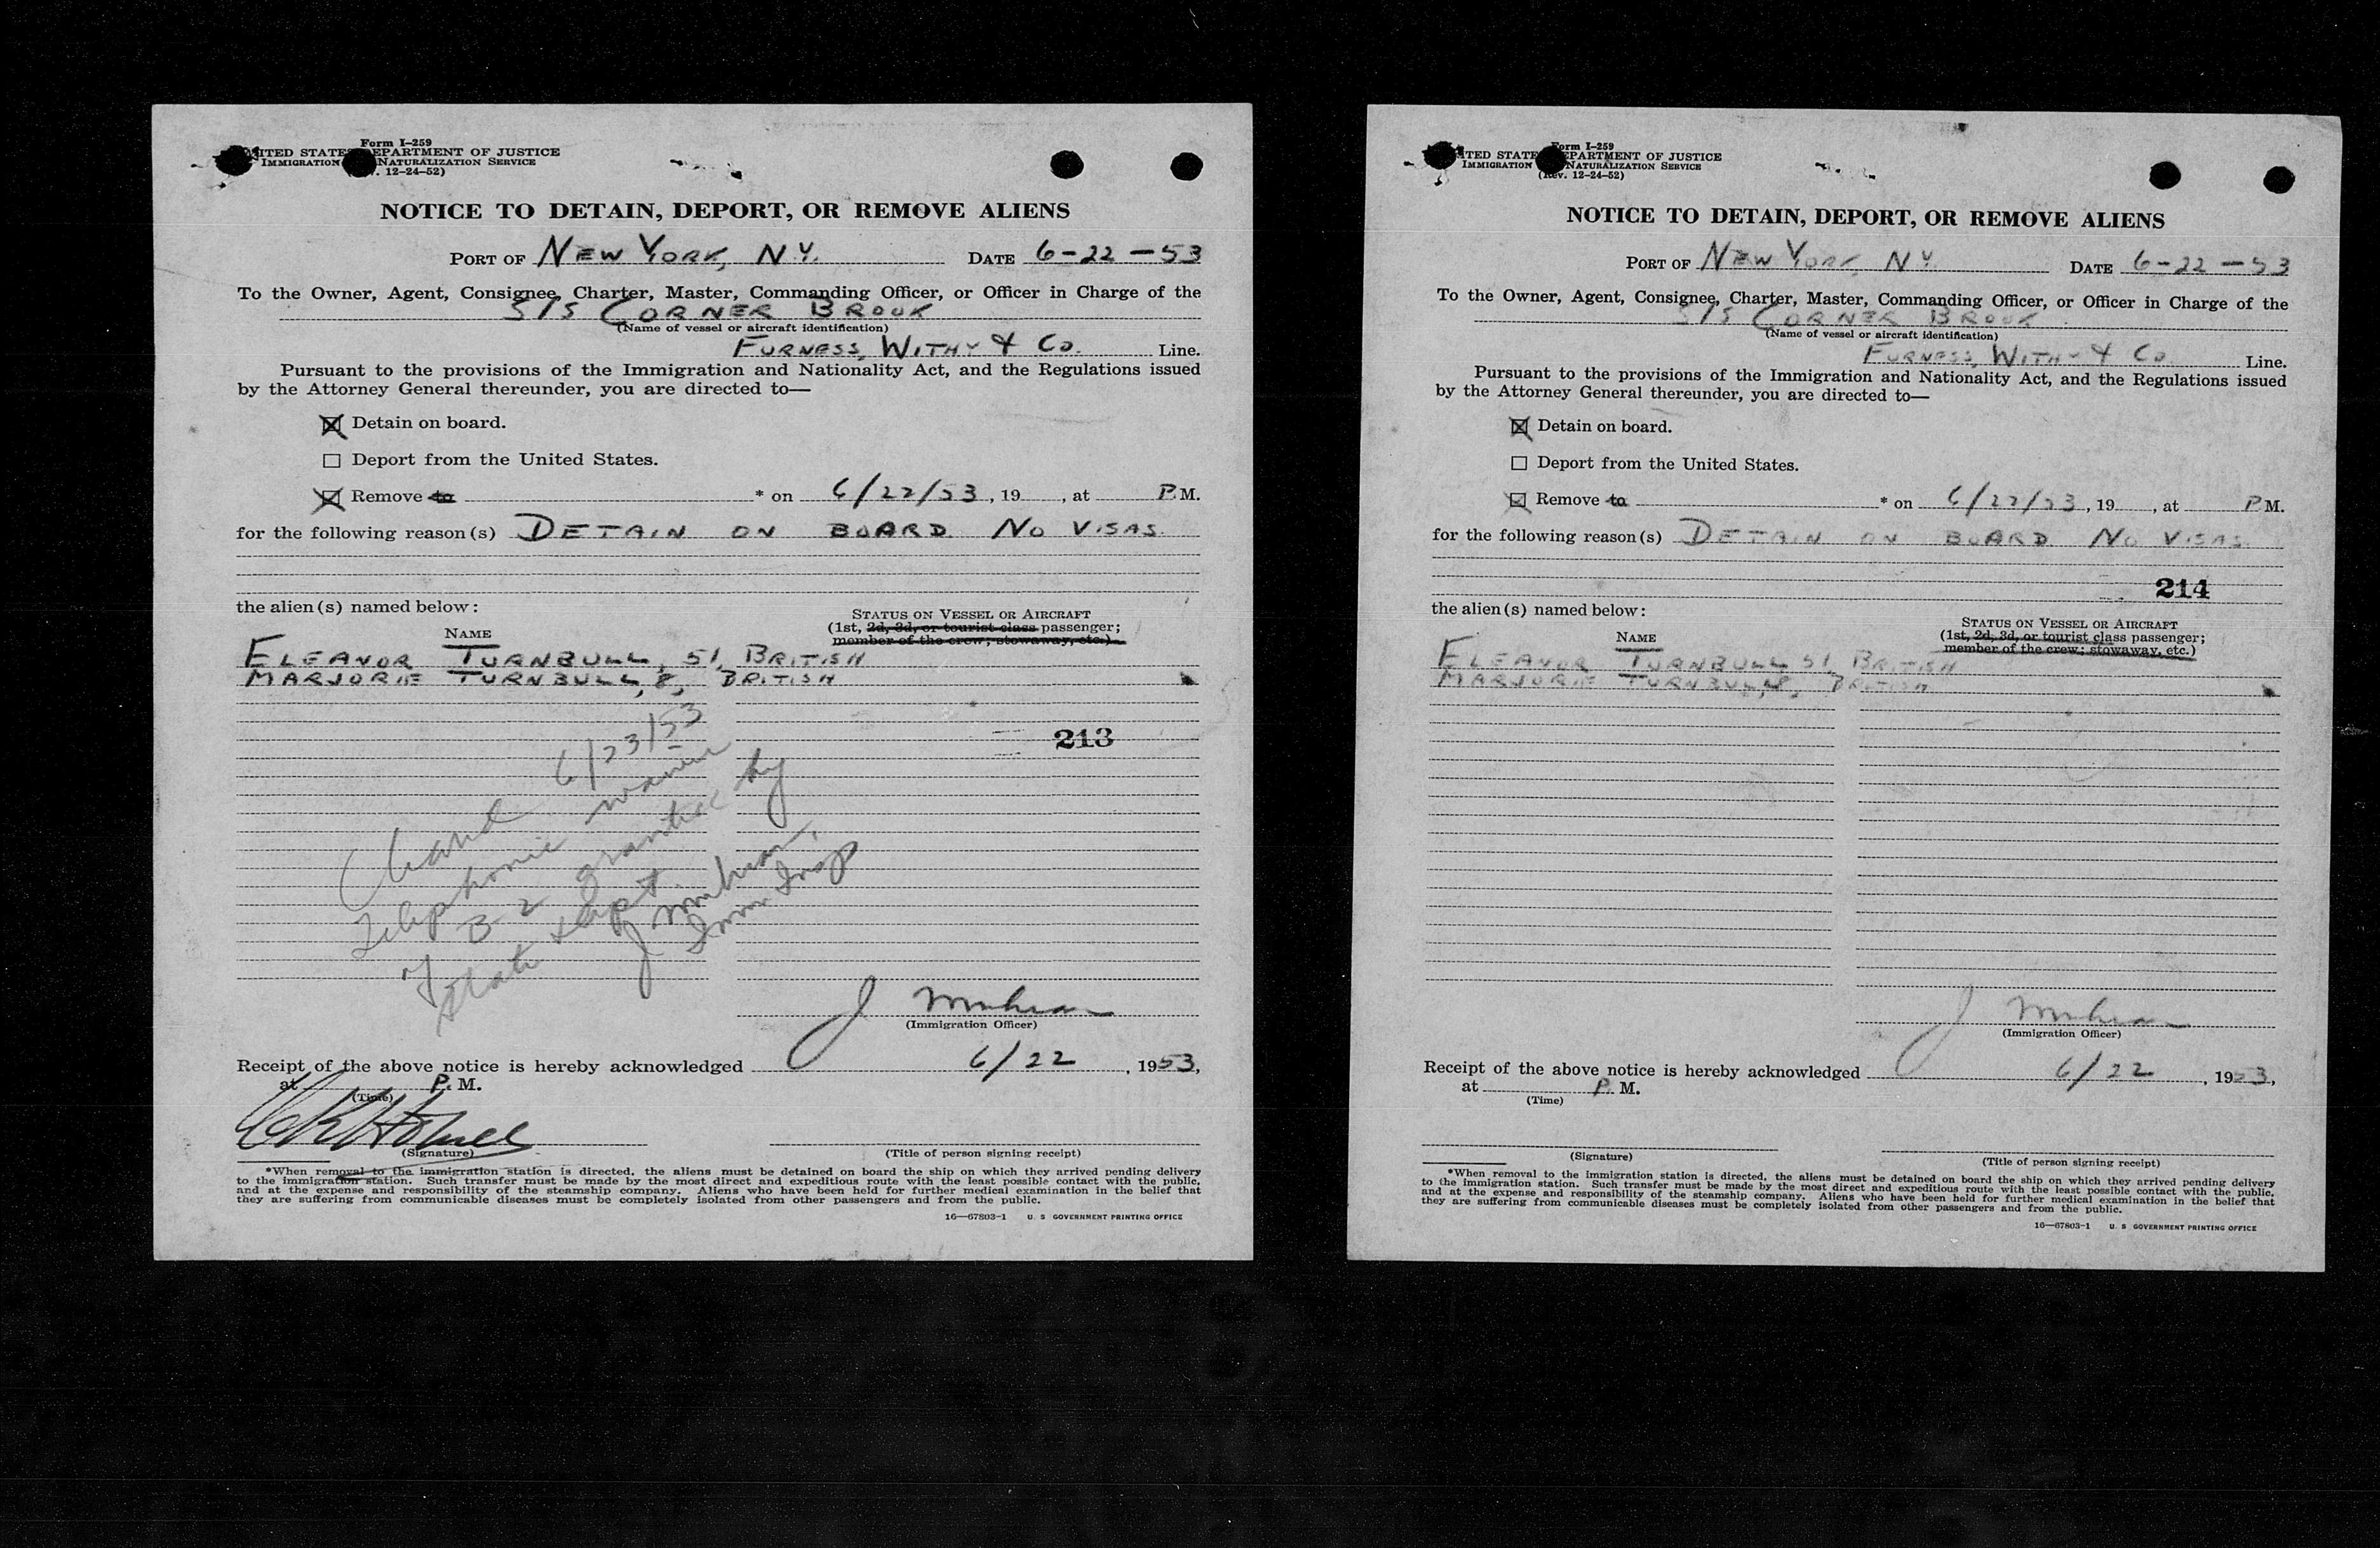 Form I-259
UNITED STATES DEPARTMENT OF JUSTICE
IMMIGRATION NATURALIZATION SERVICE
12-24-52)
NOTICE TO DETAIN, DEPORT, OR REMOVE ALIENS
PORT OF NEW YORK, N.Y. DATE 6-22-53
To the Owner, Agent, Consignee, Charter, Master, Commanding Officer, or Officer in Charge of the
S/S CORNER BROOK
(Name of vessel or aircraft identification)
FURNESS, WITHY & Co. Line.
Pursuant to the provisions of the Immigration and Nationality Act, and the Regulations issued
by the Attorney General thereunder, you are directed to—
☒ Detain on board.
☐ Deport from the United States.
☒ Remove to * on 6/22/53, 19 , at P.M.
for the following reason(s) DETAIN ON BOARD. NO VISAS.
the alien(s) named below:
NAME
STATUS ON VESSEL OR AIRCRAFT
(1st, 2d, 3d, or tourist class passenger;
member of the crew; stowaway, etc.)
ELEANOR TURNBULL, 51, BRITISH
MARJORIE TURNBULL, 8, BRITISH
213
6/23/53
Telephonic waiver
B-2 granted by
State Dept.
J Minhan,
Imm Insp
J Minhan
(Immigration Officer)
Receipt of the above notice is hereby acknowledged 6/22, 1953,
at P. M.
(Time)
(Signature)
(Title of person signing receipt)
*When removal to the immigration station is directed, the aliens must be detained on board the ship on which they arrived pending delivery
to the immigration station. Such transfer must be made by the most direct and expeditious route with the least possible contact with the public,
and at the expense and responsibility of the steamship company. Aliens who have been held for further medical examination in the belief that
they are suffering from communicable diseases must be completely isolated from other passengers and from the public.
16—67803-1 U. S GOVERNMENT PRINTING OFFICE
Form I-259
UNITED STATES DEPARTMENT OF JUSTICE
IMMIGRATION NATURALIZATION SERVICE
(Rev. 12-24-52)
NOTICE TO DETAIN, DEPORT, OR REMOVE ALIENS
PORT OF NEW YORK, N.Y. DATE 6-22-53
To the Owner, Agent, Consignee, Charter, Master, Commanding Officer, or Officer in Charge of the
S/S CORNER BROOK
(Name of vessel or aircraft identification)
FURNESS, WITHY & Co. Line.
Pursuant to the provisions of the Immigration and Nationality Act, and the Regulations issued
by the Attorney General thereunder, you are directed to—
☒ Detain on board.
☐ Deport from the United States.
☒ Remove to * on 6/22/53, 19 , at P.M.
for the following reason(s) DETAIN ON BOARD. NO VISAS.
214
the alien(s) named below:
NAME
STATUS ON VESSEL OR AIRCRAFT
(1st, 2d, 3d, or tourist class passenger;
member of the crew; stowaway, etc.)
ELEANOR TURNBULL 51, BRITISH
MARJORIE TURNBULL, 8, BRITISH
J Minhan
(Immigration Officer)
Receipt of the above notice is hereby acknowledged 6/22, 1953,
at P. M.
(Time)
(Signature)
(Title of person signing receipt)
*When removal to the immigration station is directed, the aliens must be detained on board the ship on which they arrived pending delivery
to the immigration station. Such transfer must be made by the most direct and expeditious route with the least possible contact with the public,
and at the expense and responsibility of the steamship company. Aliens who have been held for further medical examination in the belief that
they are suffering from communicable diseases must be completely isolated from other passengers and from the public.
16—67803-1 U. S GOVERNMENT PRINTING OFFICE